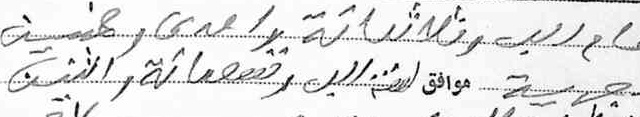 عام الف وثلاثمائة واحدى وخمسين
هجرية موافق سنة الف وتسعمائة واثنين